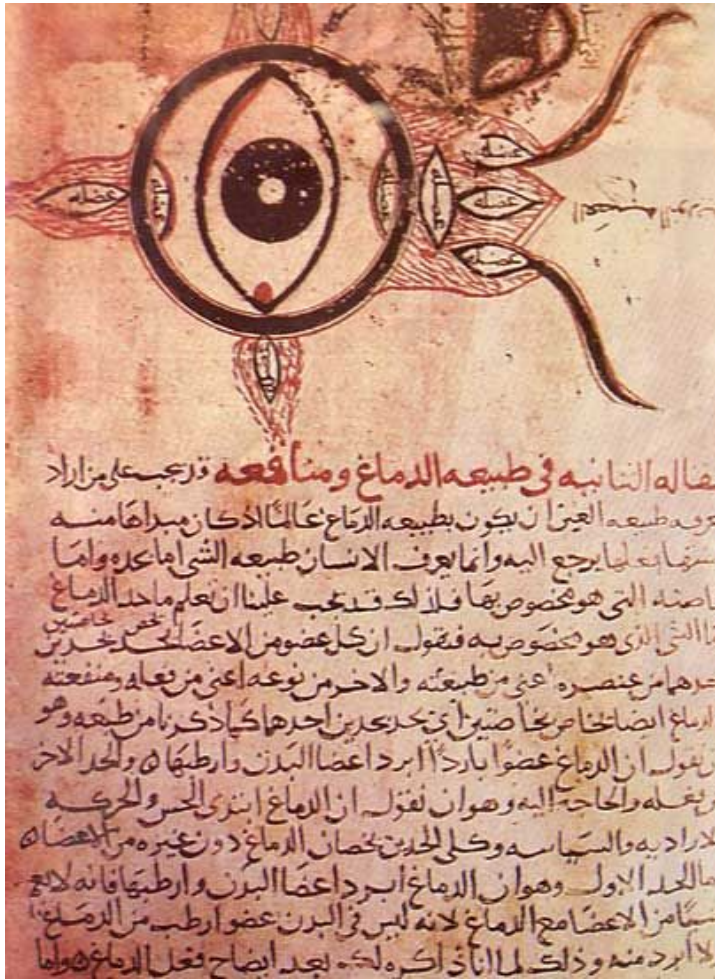 عضله
عضله
عضله
عضله
عضله
عضله
عضله
عضله
المقاله الثانيه فى طبيعه الدماغ ومنافعه قد يجب على من اراد
معرفه طبيعه العين ان يكون بطبيعه الدماغ عالمًا اذ كان مبداها منه
يرجع اليه وانما يعرف الانسان طبيعه الشى اما بحده واما
التى هو مخصوص بها فلذلك قد يجب علينا ان نعلم ما حد الدماغ
الشى الذى هو مخصوص به فنقول ان كل عضو من الاعضا يحد بحدين
احدهما من عنصره اعنى من طبيعته والاخر من نوعه اعنى من فعله ومنفعته
والدماغ ايضا بحدين احدهما كما ذكرنا من طبعه وهو
ان نقول ان الدماغ عضوًا باردًا ابرد اعضا البدن وارطبها والحد الاخر
من فعله والحاجه اليه وهو ان نقول ان الدماغ ابتدى الحس والحركه
الاراديه والسياسه وكلى الحدين يخصان الدماغ دون غيره من الاعضا
اما الحد الاول وهو ان الدماغ ابرد اعضا البدن وارطبها فانه لا يعم
شيا من الاعضا مع الدماغ لانه ليس فى البدن عضو ارطب من الدماغ
ولا ابرد منه وذلك لما انا ذاكره لك بعد ايضاح فعل الدماغ هو اما